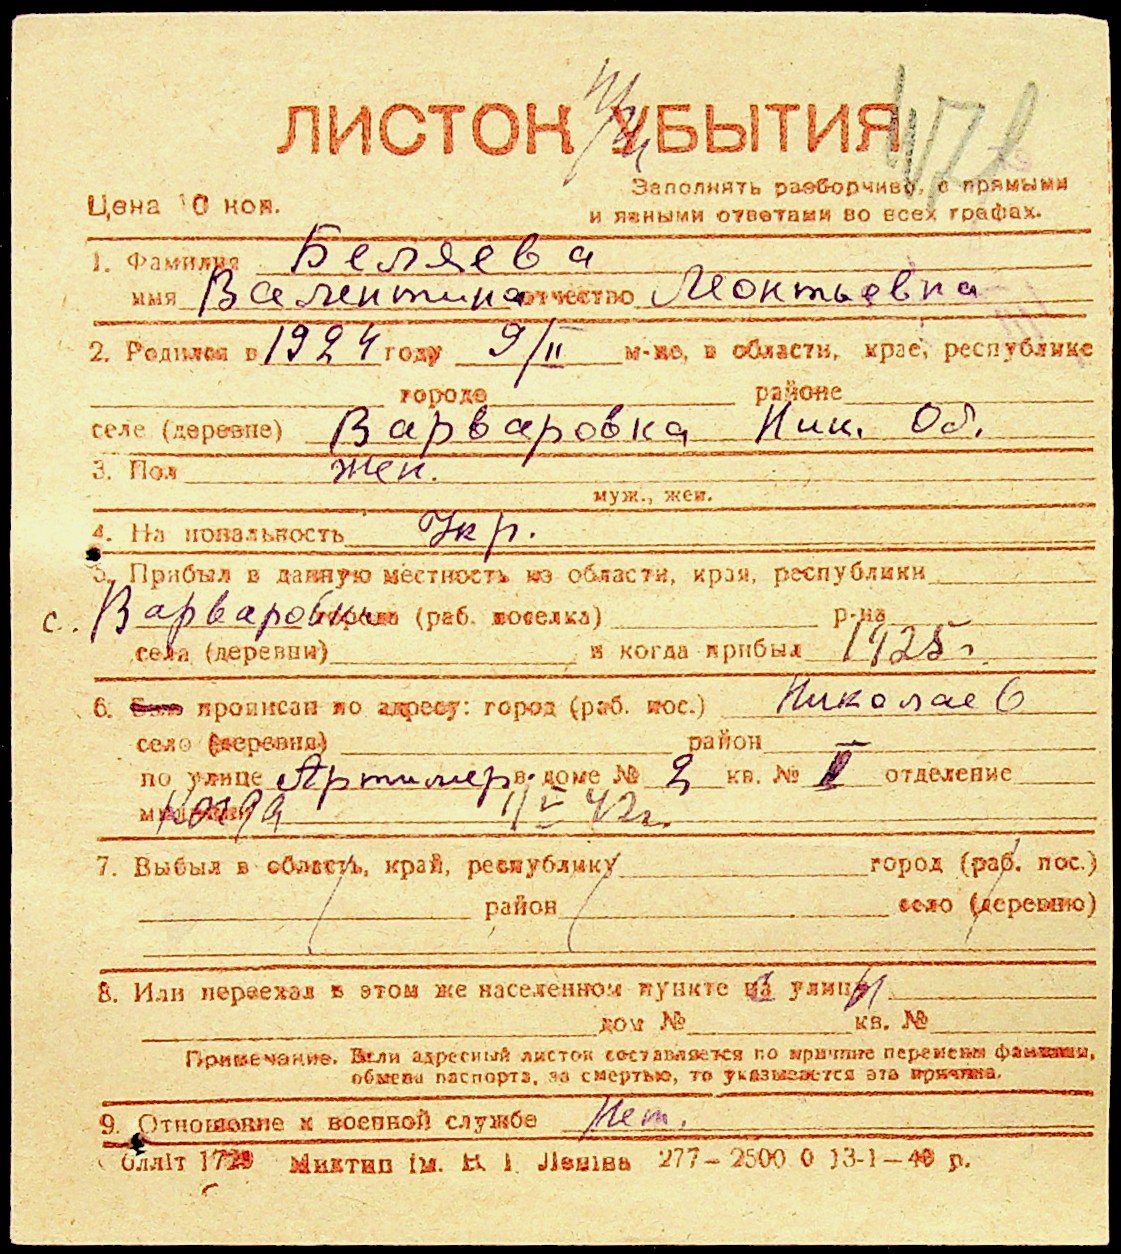 ЛИСТОК УБЫТИЯ
Цена 10 коп.
Заполнять разборчиво, с прямыми
и явными ответами во всех графах.
1. Фамилия Беляева
имя Валентина отчество Леонтьевна
2. Родился в 1924 году 9/II м-це, в области, крае, республике
городе районе
селе (деревне) Варваровка Ник. Об.
3. Пол жен.
муж., жен.
4. На иональность Укр.
5. Прибыл в данную местность из области, края, республики
с. Варваровки города (раб. поселка) р-на
села (деревни) и когда прибыл 1925 г.
6. Был прописан по адресу: город (раб. пос.) Николаев
село (деревня) район
по улице Артилер. в доме № 2 кв. № отделение
милиции 42 г.
7. Выбыл в область, край, республику город (раб. пос.)
район село (деревню)
8. Или переехал в этом же населенном пункте на улицу
дом № кв. №
Примечание. Если адресный листок составляется по причине перемены фамилии,
обмена паспорта, за смертью, то указывается эта причина.
9. Отношение к военной службе Нет.
блліт 1729 Миктип ім. В. І. Леніна 277-2500 0 13-1-40 р.